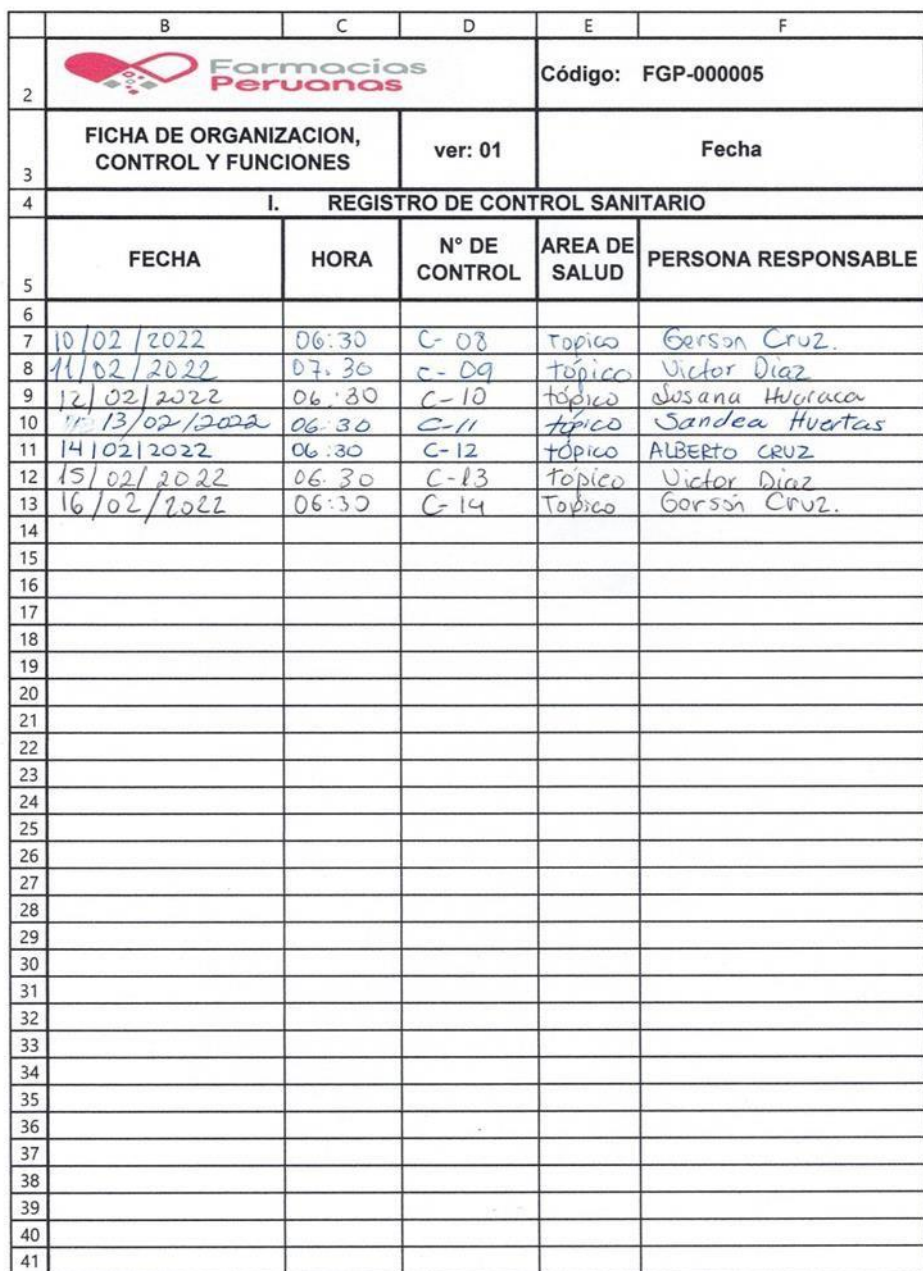 B C D E F
2 Farmacias Peruanas Código: FGP-000005
3 FICHA DE ORGANIZACION, CONTROL Y FUNCIONES ver: 01 Fecha
4 I. REGISTRO DE CONTROL SANITARIO
5 FECHA HORA N° DE CONTROL AREA DE SALUD PERSONA RESPONSABLE
6
7 10/02/2022 06:30 C-08 Topico Gerson Cruz.
8 11/02/2022 07.30 c-09 tópico Victor Diaz
9 12/02/2022 06:30 C-10 tópico Susana Huaraca
10 13/02/2022 06:30 C-11 tópico Sandea Huertas
11 14/02/2022 06:30 C-12 tópico ALBERTO CRUZ
12 15/02/2022 06.30 C-13 Tópico Victor Diaz
13 16/02/2022 06:30 C-14 Topico Gerson Cruz.
14
15
16
17
18
19
20
21
22
23
24
25
26
27
28
29
30
31
32
33
34
35
36
37
38
39
40
41